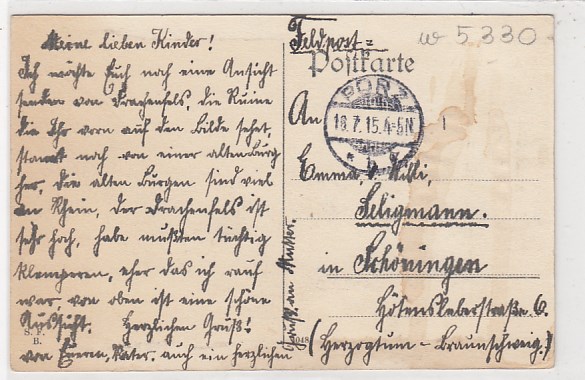 Meine lieben Kinder!
Ich möchte Euch noch eine Ansicht
senden von Drachenfels, die Ruine
die Ihr vorn auf den Bilde sehet,
stammt noch von einer alten Burg
her, die alten Burgen sind viel
an Rhein, der Drachenfels ist
sehr hoch, habe mußten tüchtig
klemperen, eher das ich rauf
war, von oben ist eine schöne
Aussicht. Herzlichen Gruß!
von Eueren Vater. auch ein herzlichen
Gruß an Mutter.
S. F.
B.
1048
w 5330
Feldpost=
Postkarte
PORZ
18.7.15.4-5N
An
Emma, u. Willi,
Seligmann.
in Schöningen
Hötenslebersstraße 6.
(Herzogtum - Braunschweig.)